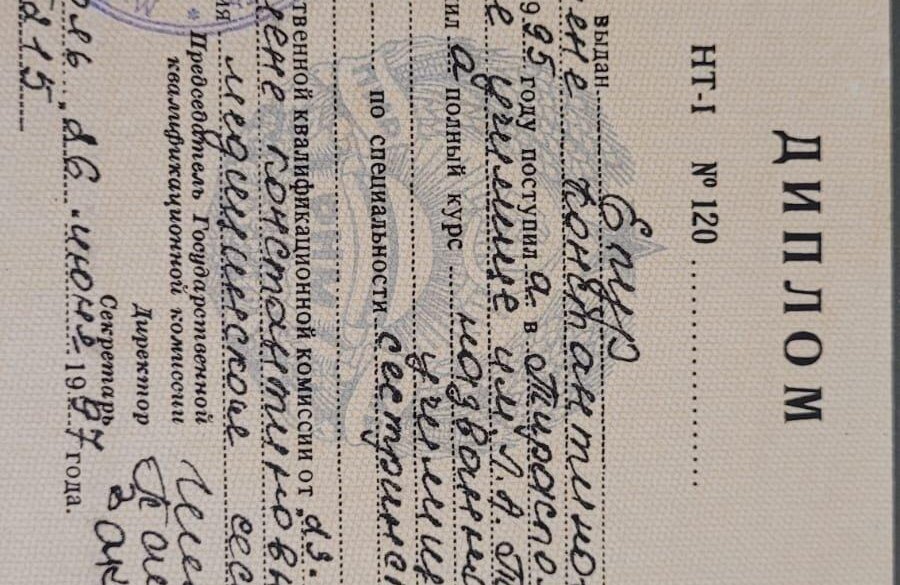 ДИПЛОМ
НТ-I № 120
выдан Епур
ене Константино
995 году поступил а в Тираспо
е училище им. Л. А. Т
ил а полный курс названно
училищ
по специальности сестринс
твенной квалификационной комиссии от „23.
ене Константиновн
ия медицинское сес
Председатель Государственной
квалификационной комиссии
Директор
Секретарь
ль „26" июня 1997 года.
215